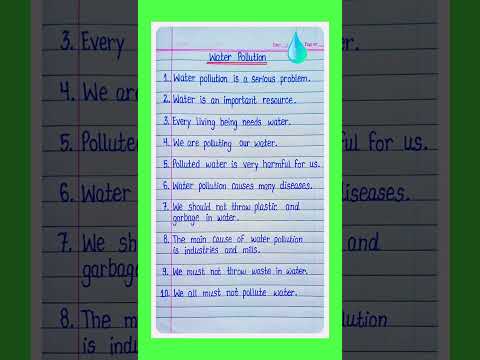 Water Pollution
1. Water pollution is a serious problem.
2. Water is an important resource.
3. Every living being needs water.
4. We are polluting our water.
5. Polluted water is very harmful for us.
6. Water pollution causes many diseases.
7. We should not throw plastic and
garbage in water.
8. The main cause of water pollution
is industries and mills.
9. We must not throw waste in water.
10. We all must not pollute water.
3. Every
4. We are
5. Polluted
6. Water
7. We sh
garbage
8. The m
is indus
er.
l for us.
iseases.
and
ution